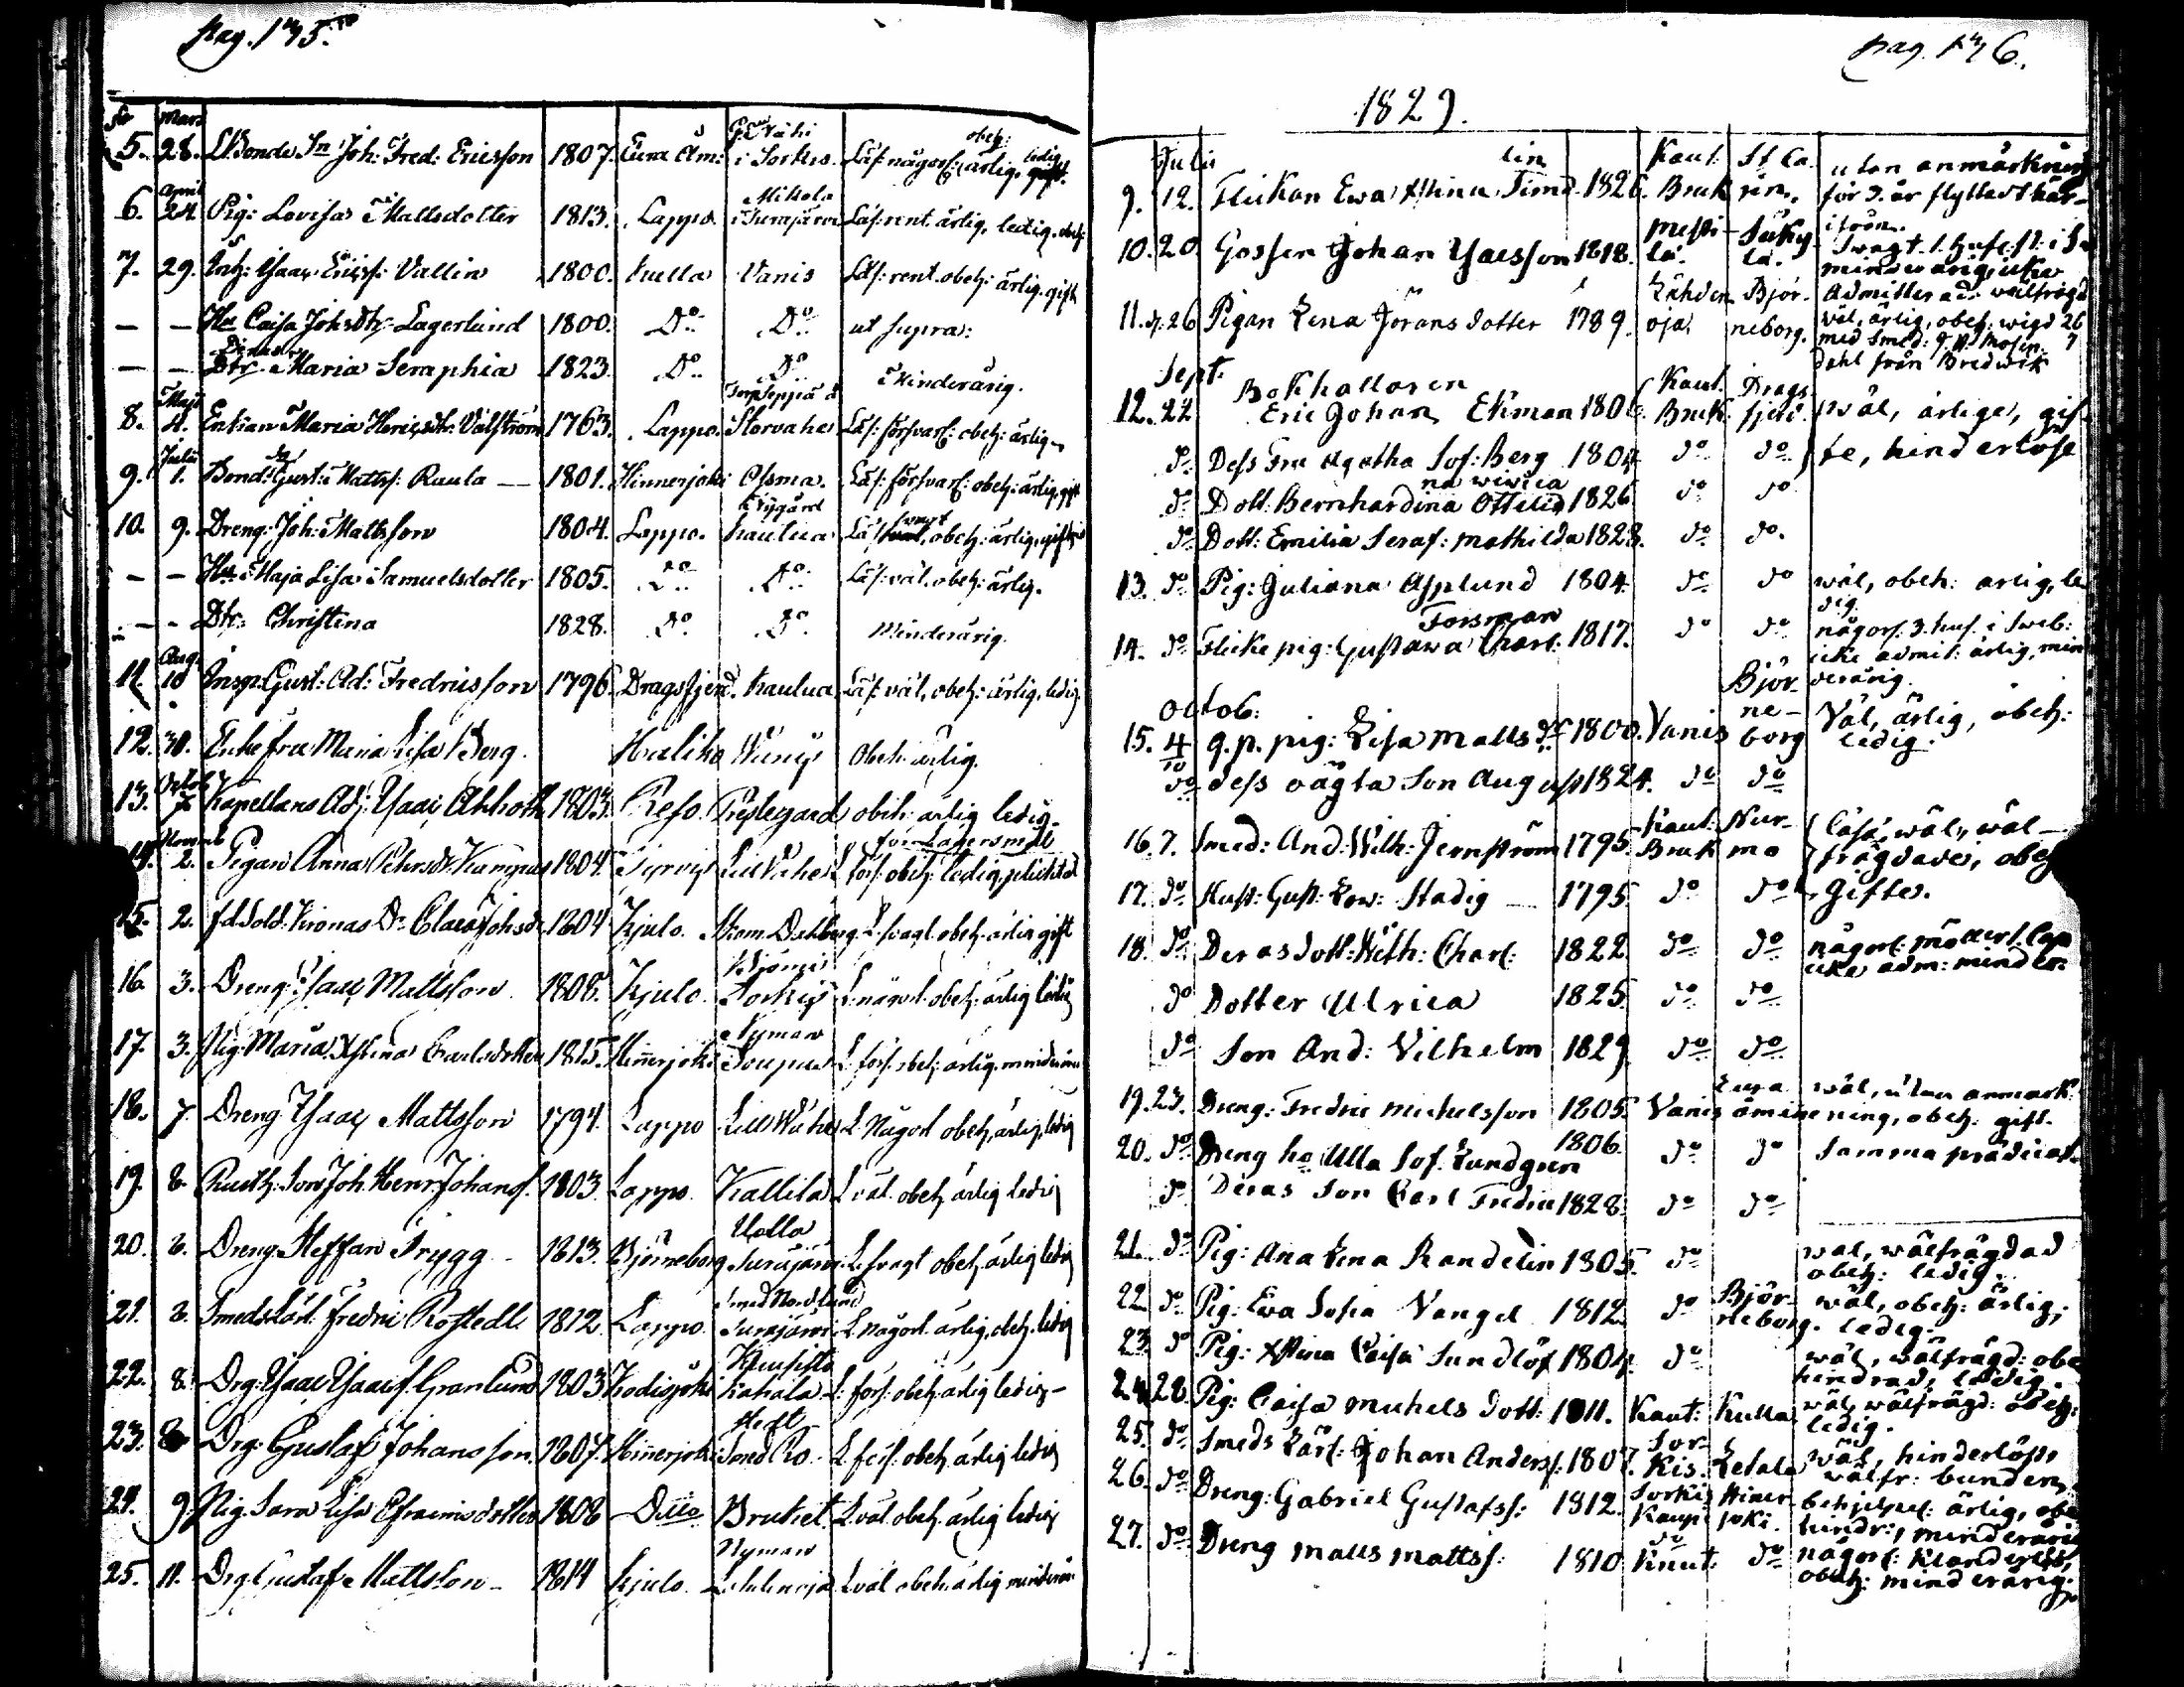 pag. 175.
No Mars
5. 28. Bonde Sn Joh: Fred: Ericsson 1807. Eura Åm: i Sorkis. Läs: någorl: ärlig, obeh: ledig
April
6. 24. Pig: Lovisa Mattsdotter 1813. Lappo. Mikola i Turajärvi Läs: rent. ärlig, ledig. obeh:
7. 29. Inh: Isaac Ericss: Vallin 1800. Kulla Vanis Läs: rent. obeh: ärlig. gift
— — Hu Caisa Johsdtr Lagerlund 1800. Do Do ut supra:
— — Deras Dtr Maria Seraphia 1823. Do Do Minderårig.
Maji
8. 4. Enkan Maria Henricsdtr: Valström 1763. Lappo. Storvaha Läs: försvarl: obeh: ärlig
Julii
9. 1. Bond: Gust: Mattss: Raula — 1801. Hinnerjoki Assma. Läs: försvarl: obeh: ärlig. gift
10. 9. Dreng: Joh: Mattsson 1804. Lappo. Nygård Kautua Läs: svagt, obeh: ärlig, gift
— — Hu Maja Lisa Samuelsdotter 1805. Do Do Läs: väl. obeh: ärlig.
— — Dtr: Christina 1828. Do Do Minderårig.
Aug.
11. 10 Insp: Gust: Ad: Fredriksson 1796. Dragsfjerd. Kautua Läs: väl, obeh: ärlig, ledig
12. 30. Enkefru Maria Lisa Berg. Haliko Wänis Obeh: ärlig.
Octob
13. 7. Kapellans Adj: Isaac Ahlroth 1803. Reso. Prestegård obeh: ärlig ledig.
Novemb
14. 2. Pigan Anna Pehrsdr Kumpus 1804. Tyrvis Lill Vaha L. förs: obeh: ledig, för Lägersmål plichtad
15. 2. fd Sold: Kronas Dr Claes Johsdr 1804 Kjulo. Skom. Dahlberg. L. svagt. obeh: ärlig gift
16. 3. Dreng: Isaac Mattsson 1808. Kjulo. Sorkis L. någorl: obeh: ärlig ledig
17. 3. Pig: Maria Xstina Carlsdotter 1815. Hinnerjoki Nyman Soupas L. förs: obeh: ärlig. minderårig
18. 7. Dreng Isaac Mattsson 1794. Lappo Lill Wäha L. Någorl obeh: ärlig, ledig
19. 8. Rusth: Son Joh: Henr: Johans. 1803. Lappo. Kallila L. väl. obeh: ärlig ledig
20. 8. Dreng Steffan Trygg — 1813. Björneborg Uolla Turajärvi L. svagt obeh: ärlig ledig
21. 8. Smeds Lärl: Fredric Rostedt 1812. Lappo. Smed Nordlund Turajärvi L. någorl. ärlig, obeh: ledig
22. 8. Drg: Isaac Isaacs. Granlund 1803 Kodisjoki Kuusisto Kahala L. förs: obeh: ärlig ledig —
23. 8 Drg: Gustaf Johansson 1807. Hinnerjoki Smed Rostedt L. förs: obeh: ärlig ledig
24. 9. Pig. Sara Lisa Efraimsdotter 1808 Ditto Bruket. L. väl. obeh: ärlig ledig
25. 11. Drg Gustaf Mattsson — 1814 Kjulo. Nyman L. väl obeh: ärlig minderår:
pag. 176.
1829.
Julii
9. 12. Flickan Ewa Stina Timelin 1826. Kaut: Bruk utan anmärkning för 3. år flyttad här- ifrån.
10. 20. Gossen Johan Isacsson 1818. Säkylä. Swagt. minderårig, icke
11. d. 26 Pigan Lena Jörans dotter 1789. Lähden oja. Björneborg. Admitterad. wälfrägd wäl, ärlig, obeh: wigd 26 med Smed: g. p. Mosendahl från Bredwik
Sept.
12. 22 Bokhallaren Eric Johan Ekman 1806. Kaut. Bruk. Dragsfjerd. wäl, ärliga, gif-
do Dess Fru Agatha Sof: Berg 1804 do do te, hinderlöse
do Dott: Bernhardina Ottilia 1826 do do
do Dott: Emilia Seraf: Mathilda 1828. do do.
13. do Pig: Juliana Asplund 1804 do do wäl, obeh: ärlig, ledig.
14. do Flicke pig: Gustava Charl: Forsman 1817. do do någorl. 3. huf. i Sveb: icke admit: ärlig, minderårig.
Octob:
15. 4/10 q. p. pig: Lisa Matts dr 1800. Vanis Björneborg Väl, ärlig, obeh: ledig.
do dess oägta Son August 1824. do do
16. 7. Smed: And: Wilh: Jernström 1795. Kaut: Bruk Nurmo läsa wäl, wäl-
17. do Hust: Gust: Low: Stadig — 1795 do do frägdade, obeh: Giftes.
18. do Deras dott: Wilh: Charl: 1822. do do någorl: icke adm: minder:
do Dotter Ulrica 1825 do do
do Son And: Vilhelm 1829 do do
19. 23. Dreng: Fredric Michelsson 1805. Vanis Eura åminne wäl, utan anmärk: ning, obeh: gift.
20. do Dreng hu Ulla Sof. Lundgren 1806. do do Samma prädicat.
do Deras Son Carl Fredric 1828. do do
21. do Pig: Ana Lena Randelin 1805. do wäl, wälfrägdad obeh: ledig.
22. do Pig: Ewa Sofia Vangel 1812. do Björneborg. wäl, obeh: ärlig, ledig.
23. do Pig: Xstina Caisa Sundlöf 1804. do wäl, wälfrägd: obehindrad, ledig.
24. 28. Pig: Caisa Michels dott: 1811. Kaut: Kulla wäl, wälfrägd: obeh: ledig.
25. do Smeds Lärl: Johan Anderss: 1807. Sorkis. Letala wäl, hinderlös, wälfr: bunden,
26. do Dreng: Gabriel Gustafss: 1812. Sorkis Hinerjoki behjelpel: ärlig, obehindr:, minderårig
27. do Dreng Matts Mattss: 1810 do Knut. do någorl: klanderlös, obeh: minderårig.